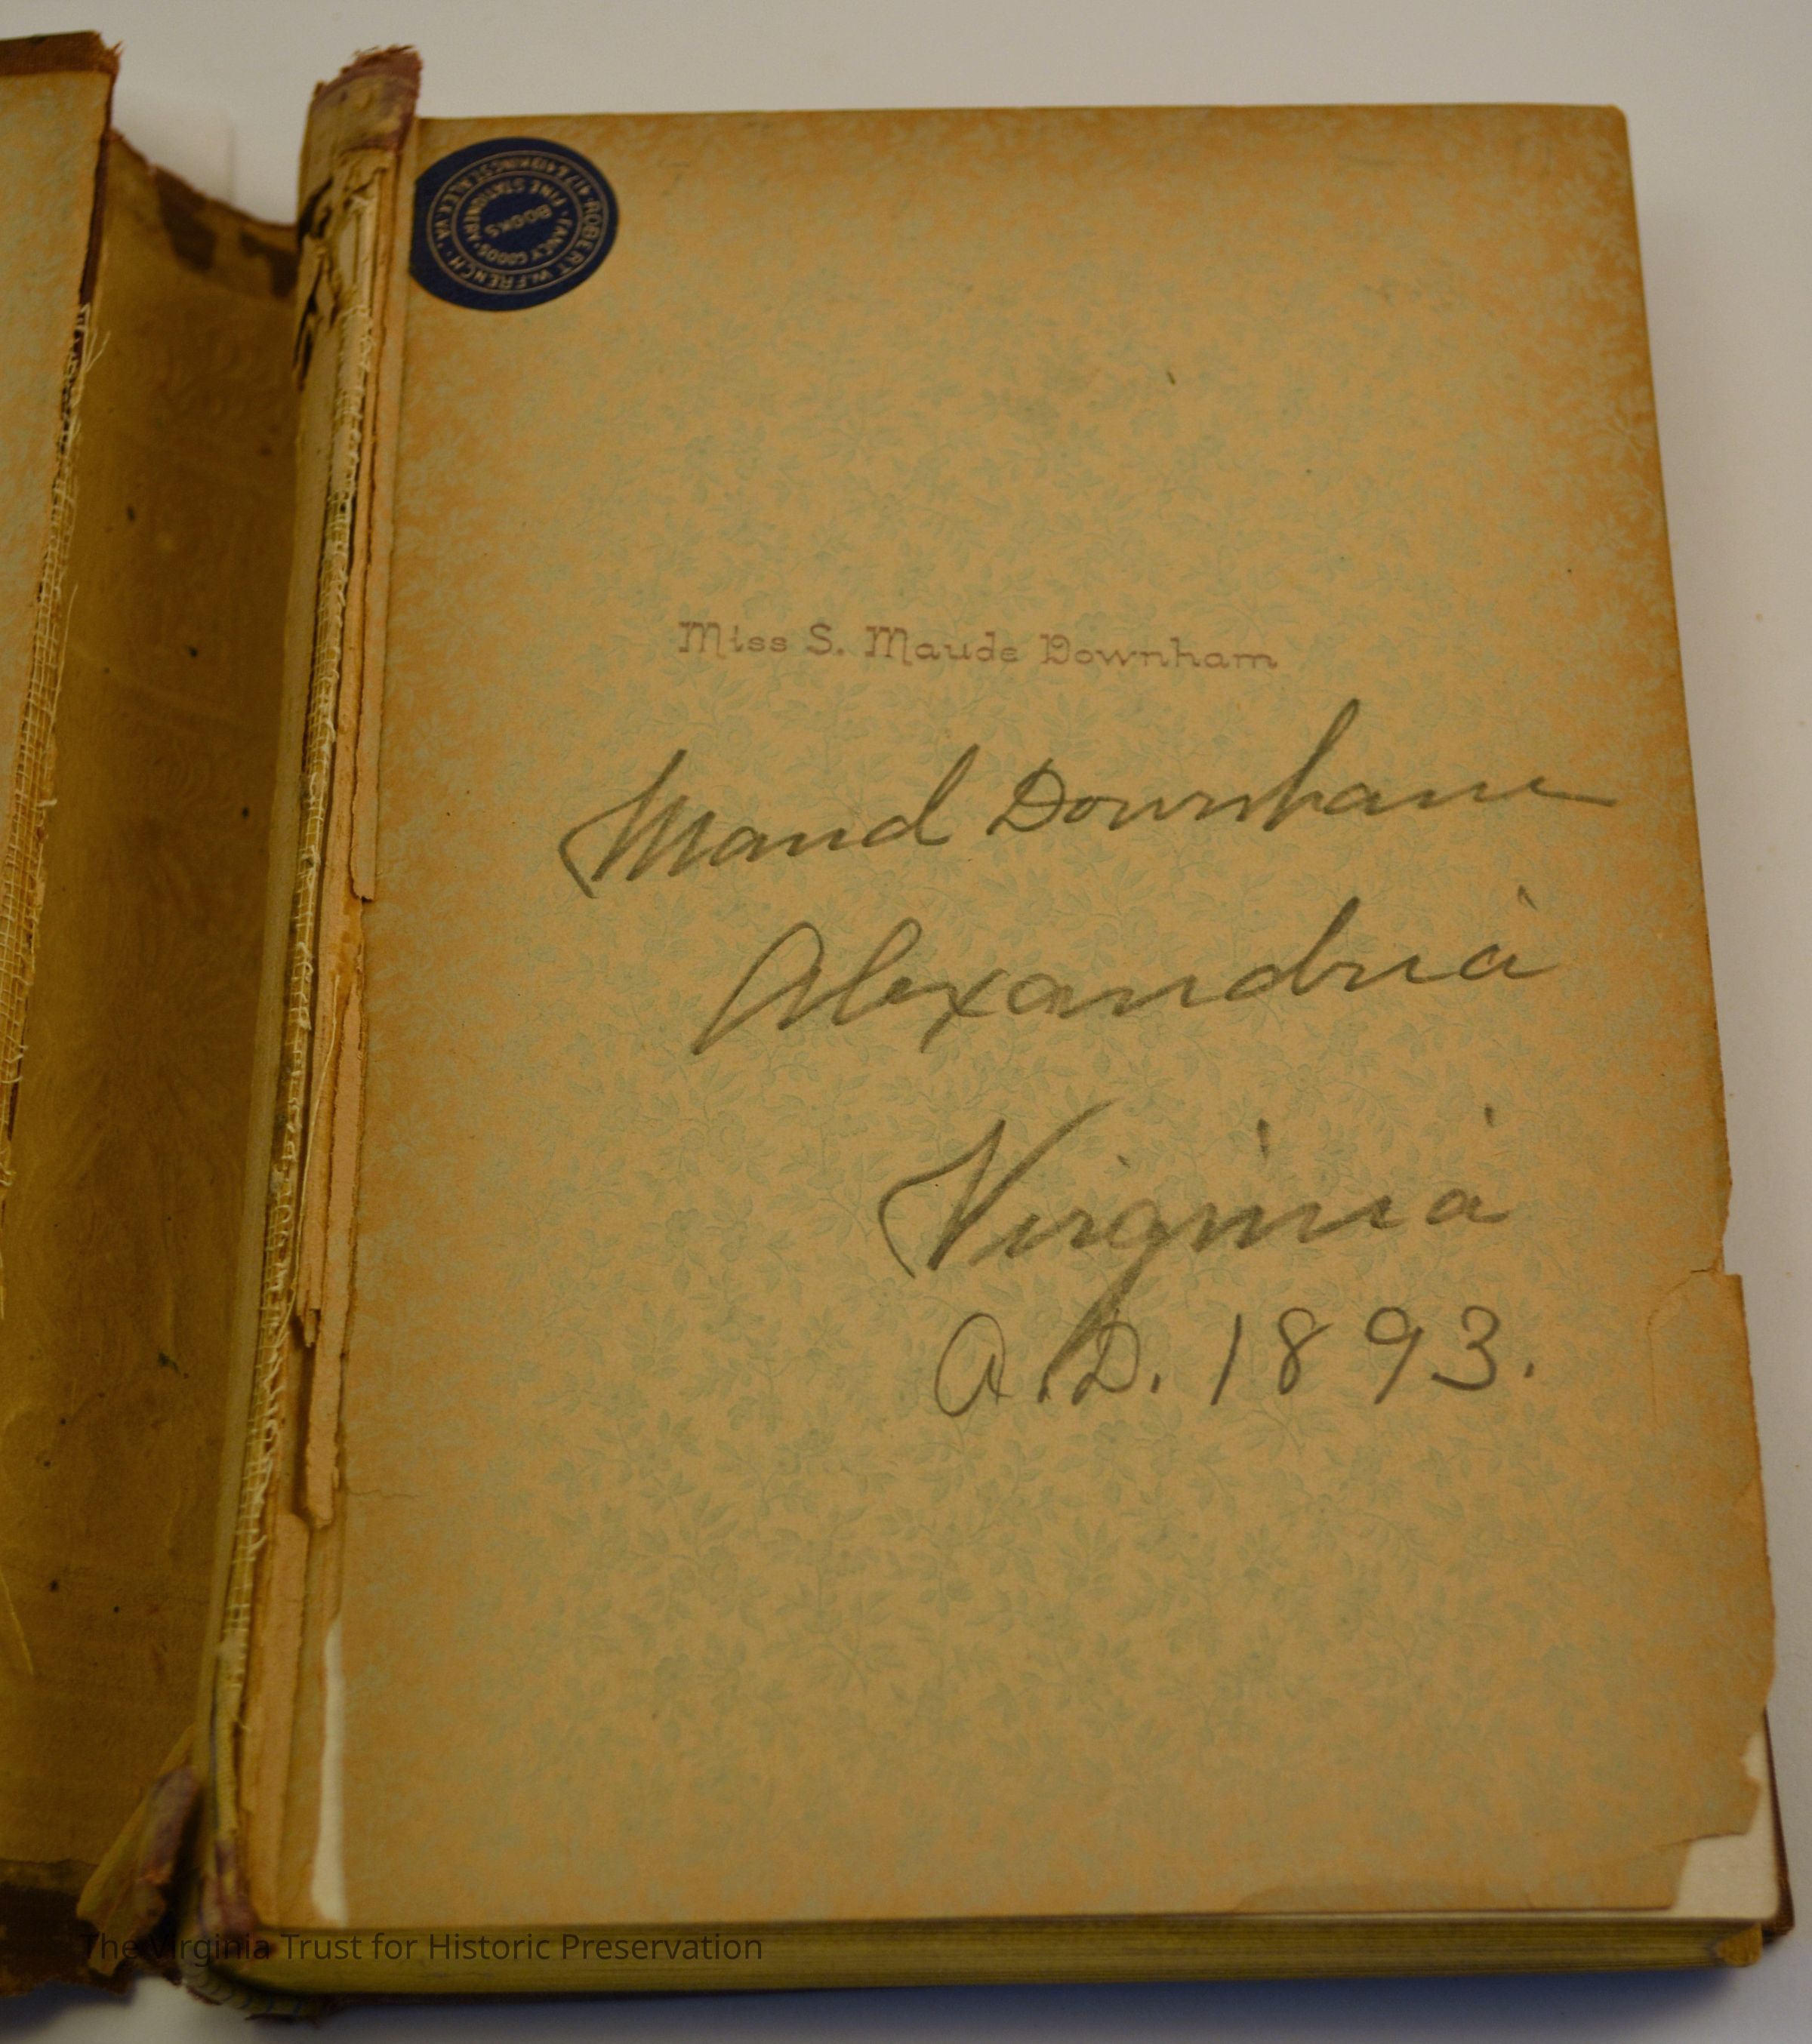 ROBERT W. FRENCH · 417 & 419 KING ST. ALEX. VA. ·
FANCY GOODS · FINE STATIONERY ·
BOOKS
Miss S. Maude Downham
Maud Downham
Alexandria
Virginia
A.D. 1893.
The Virginia Trust for Historic Preservation